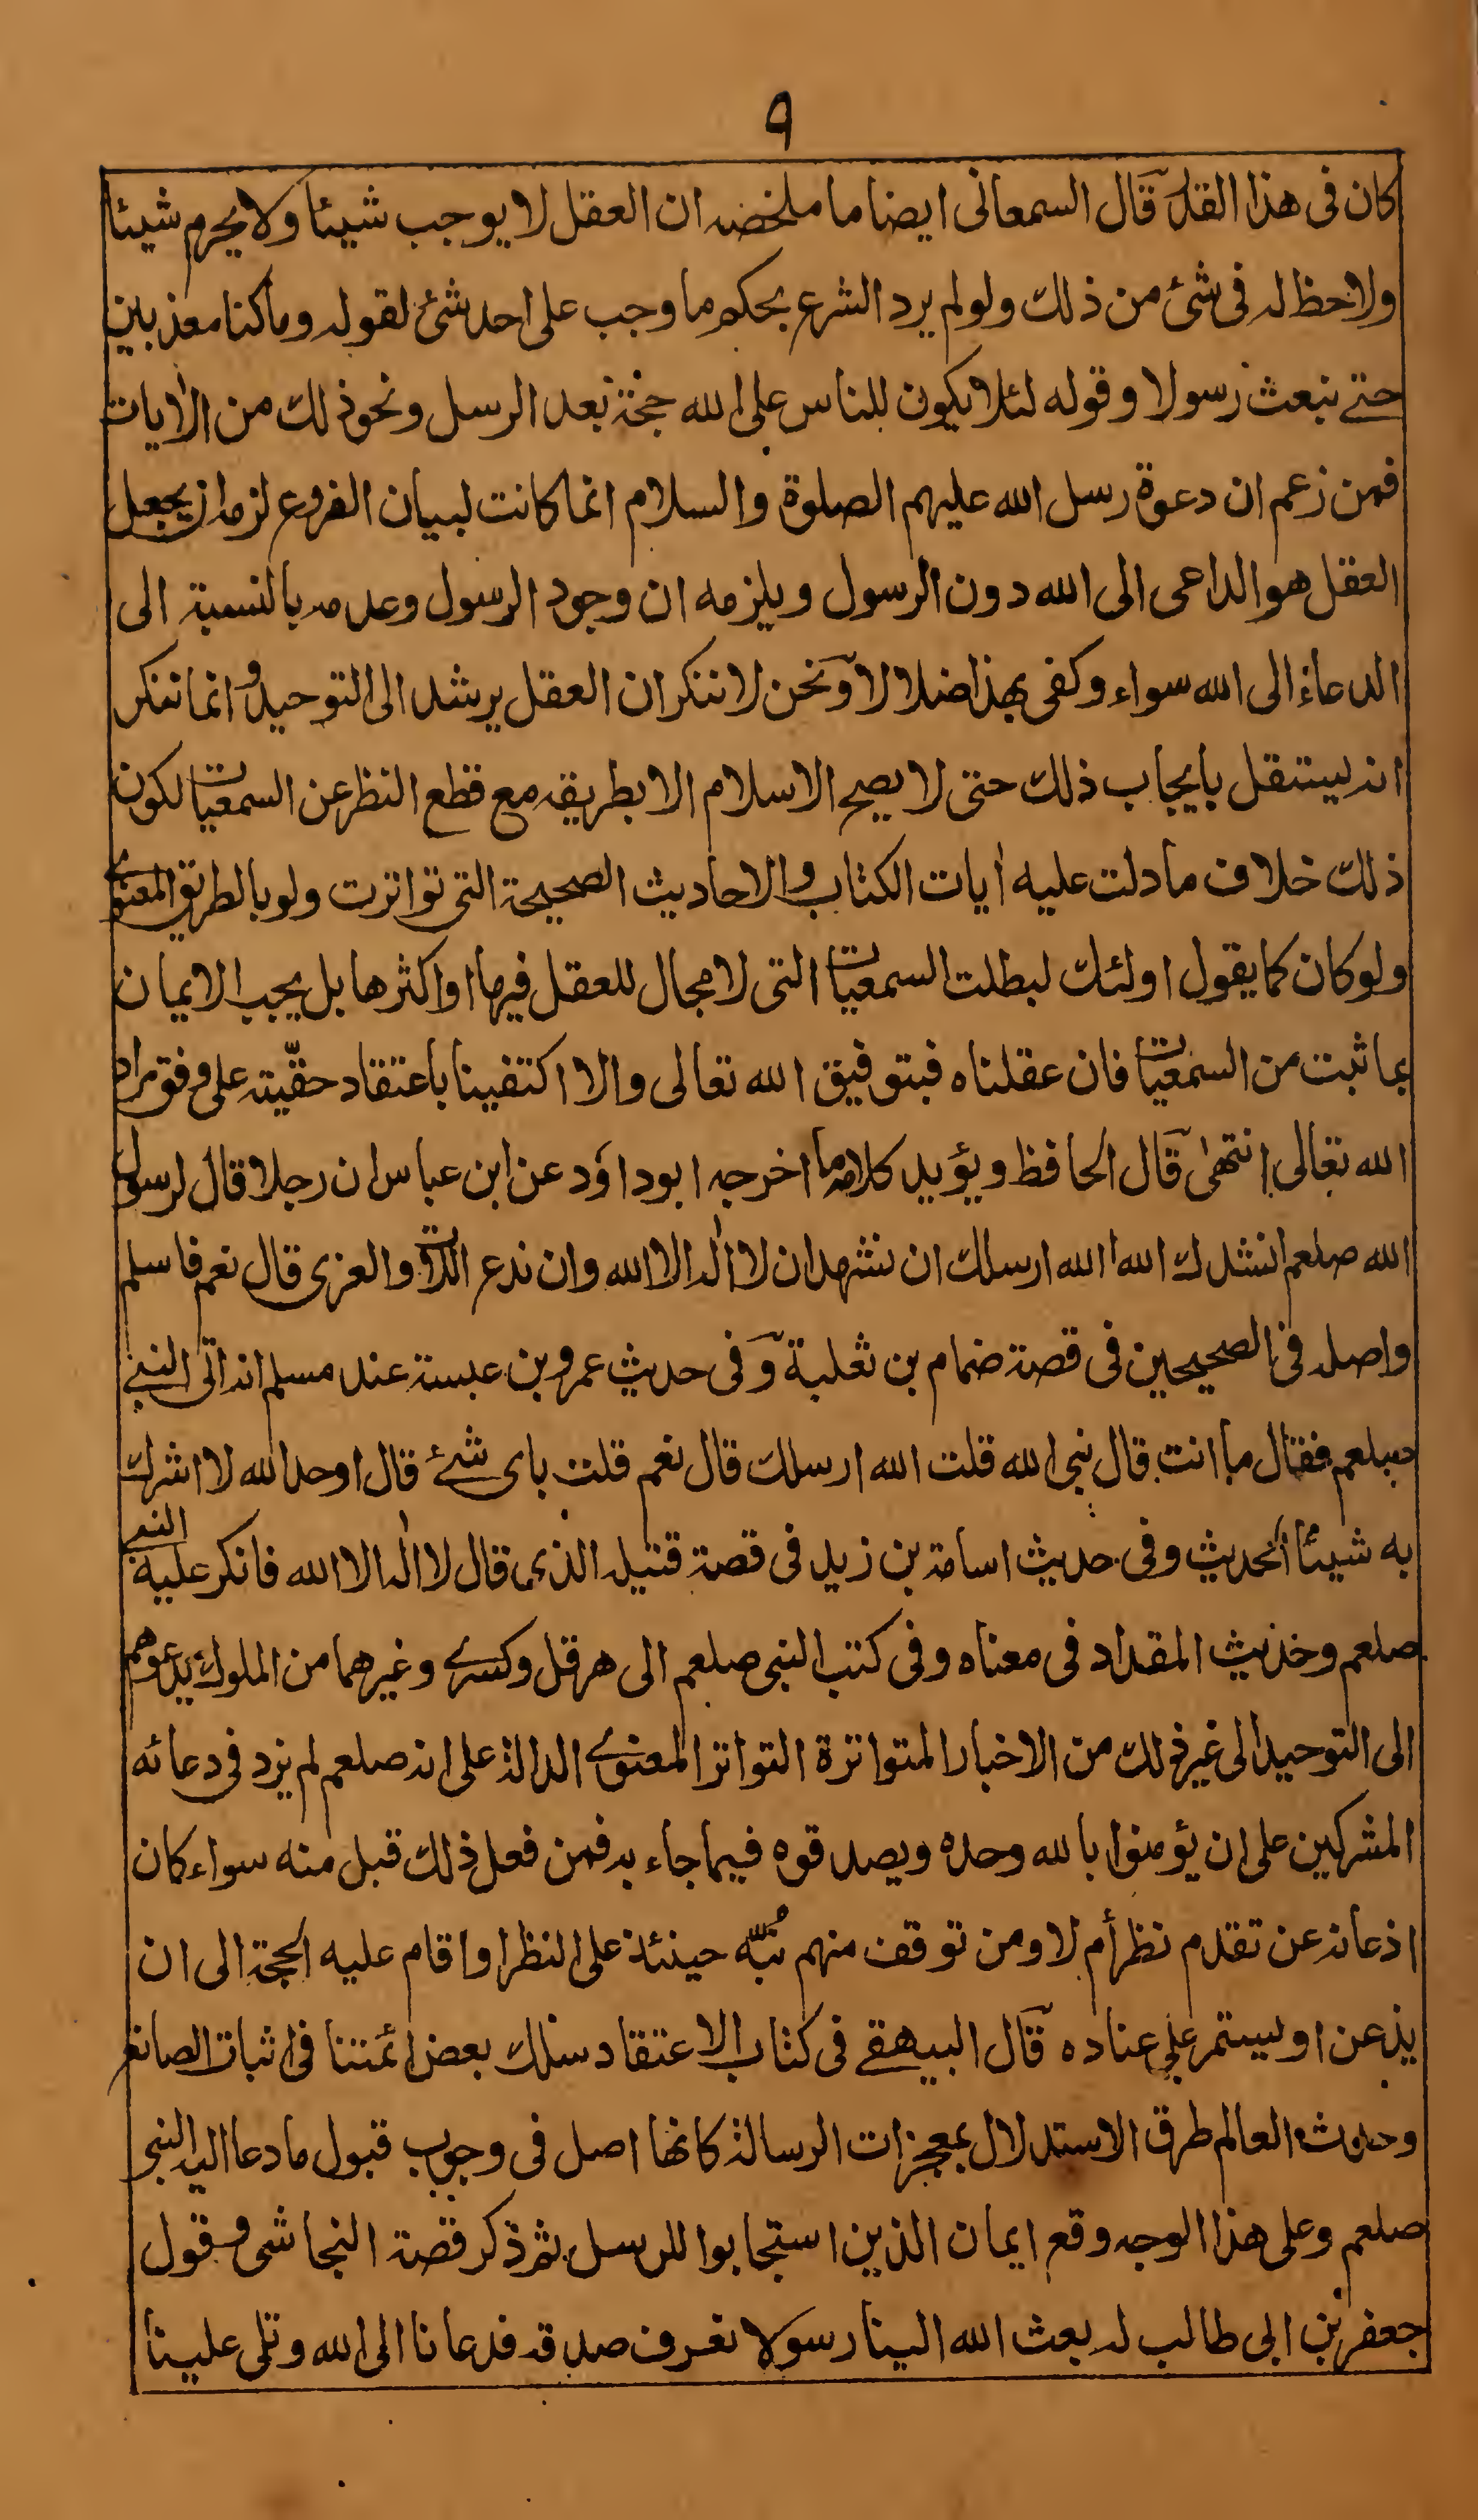 ٩
كان فى هذا القدر قال السمعانى ايضا ما ملخصه ان العقل لا يوجب شيئا ولا يحرم شيئا
ولاحظ له فى شئ من ذلك ولو لم يرد الشرع بحكم ما وجب على احد شئ لقوله وما كنا معذبين
حتے نبعث رسولا وقوله لئلا يكون للناس على الله حجة بعد الرسل ونحو ذلك من الاٰيات
فمن زعم ان دعوة رسل الله عليهم الصلوة والسلام انما كانت لبيان الفروع لزمه ان يجعل
العقل هو الداعى الى الله دون الرسول ويلزمه ان وجود الرسول وعدمه بالنسبة الى
الدعاء الى الله سواء وكفى بهذا ضلالا ونحن لا ننكر ان العقل يرشد الى التوحيد وانما ننكر
انه يستقل بايجاب ذلك حتى لا يصح الاسلام الا بطريقه مع قطع النظر عن السمعيات لكون
ذلك خلاف ما دلت عليه اٰيات الكتاب والاحاديث الصحيحة التى تواترت ولو بالطريق المعنوے
ولو كان كما يقول اولئك لبطلت السمعيات التى لا مجال للعقل فيها او اكثرها بل يجب الايمان
بما ثبت من السمعيات فان عقلناه فبتوفيق الله تعالى والا اكتفينا باعتقاد حقّيته على وفق مراد
الله تعالى انتهىٰ قال الحافظ ويؤيد كلامه ما اخرجه ابو داؤد عن ابن عباس ان رجلا قال لرسول
الله صلعم انشدك الله االله ارسلك ان نشهد ان لا اله الا الله وان ندع اللات والعزى قال نعم فاسلم
واصله فى الصحيحين فى قصة ضمام بن ثعلبة وفى حديث عمرو بن عبسة عند مسلم انه اتى النبى
صلعم فقال ما انت قال نبى الله قلت الله ارسلك قال نعم قلت باى شئ قال اوحد الله لا اشرك
به شيئا الحديث وفى حديث اسامة بن زيد فى قصة قتيله الذى قال لا اله الا الله فانكر عليه النبى
صلعم وحديث المقداد فى معناه وفى كتب النبى صلعم الى هرقل وكسرے وغيرهما من الملوك يدعوهم
الى التوحيد الى غير ذلك من الاخبار المتواترة التواتر المعنوے الدالة على انه صلعم لم يزد فى دعائه
المشركين على ان يؤمنوا بالله وحده ويصدقوه فيما جاء به فمن فعل ذلك قبل منه سواء كان
اذعانه عن تقدم نظر أم لا ومن توقف منهم نُبّه حينئذ على النظر او اقام عليه الحجة الى ان
يذعن او يستمر على عناده قال البيهقے فى كتاب الاعتقاد سلك بعض ائمتنا فى اثبات الصانع
وحدوث العالم طرق الاستدلال بمعجزات الرسالة كانها اصل فى وجوب قبول ما دعا اليه النبى
صلعم وعلى هذا الوجه وقع ايمان الذين استجابوا للرسل ثم ذكر قصة النجاشى وقول
جعفر بن ابى طالب له بعث الله الينا رسولا نعرف صدقه فدعانا الى الله وتلى علينا